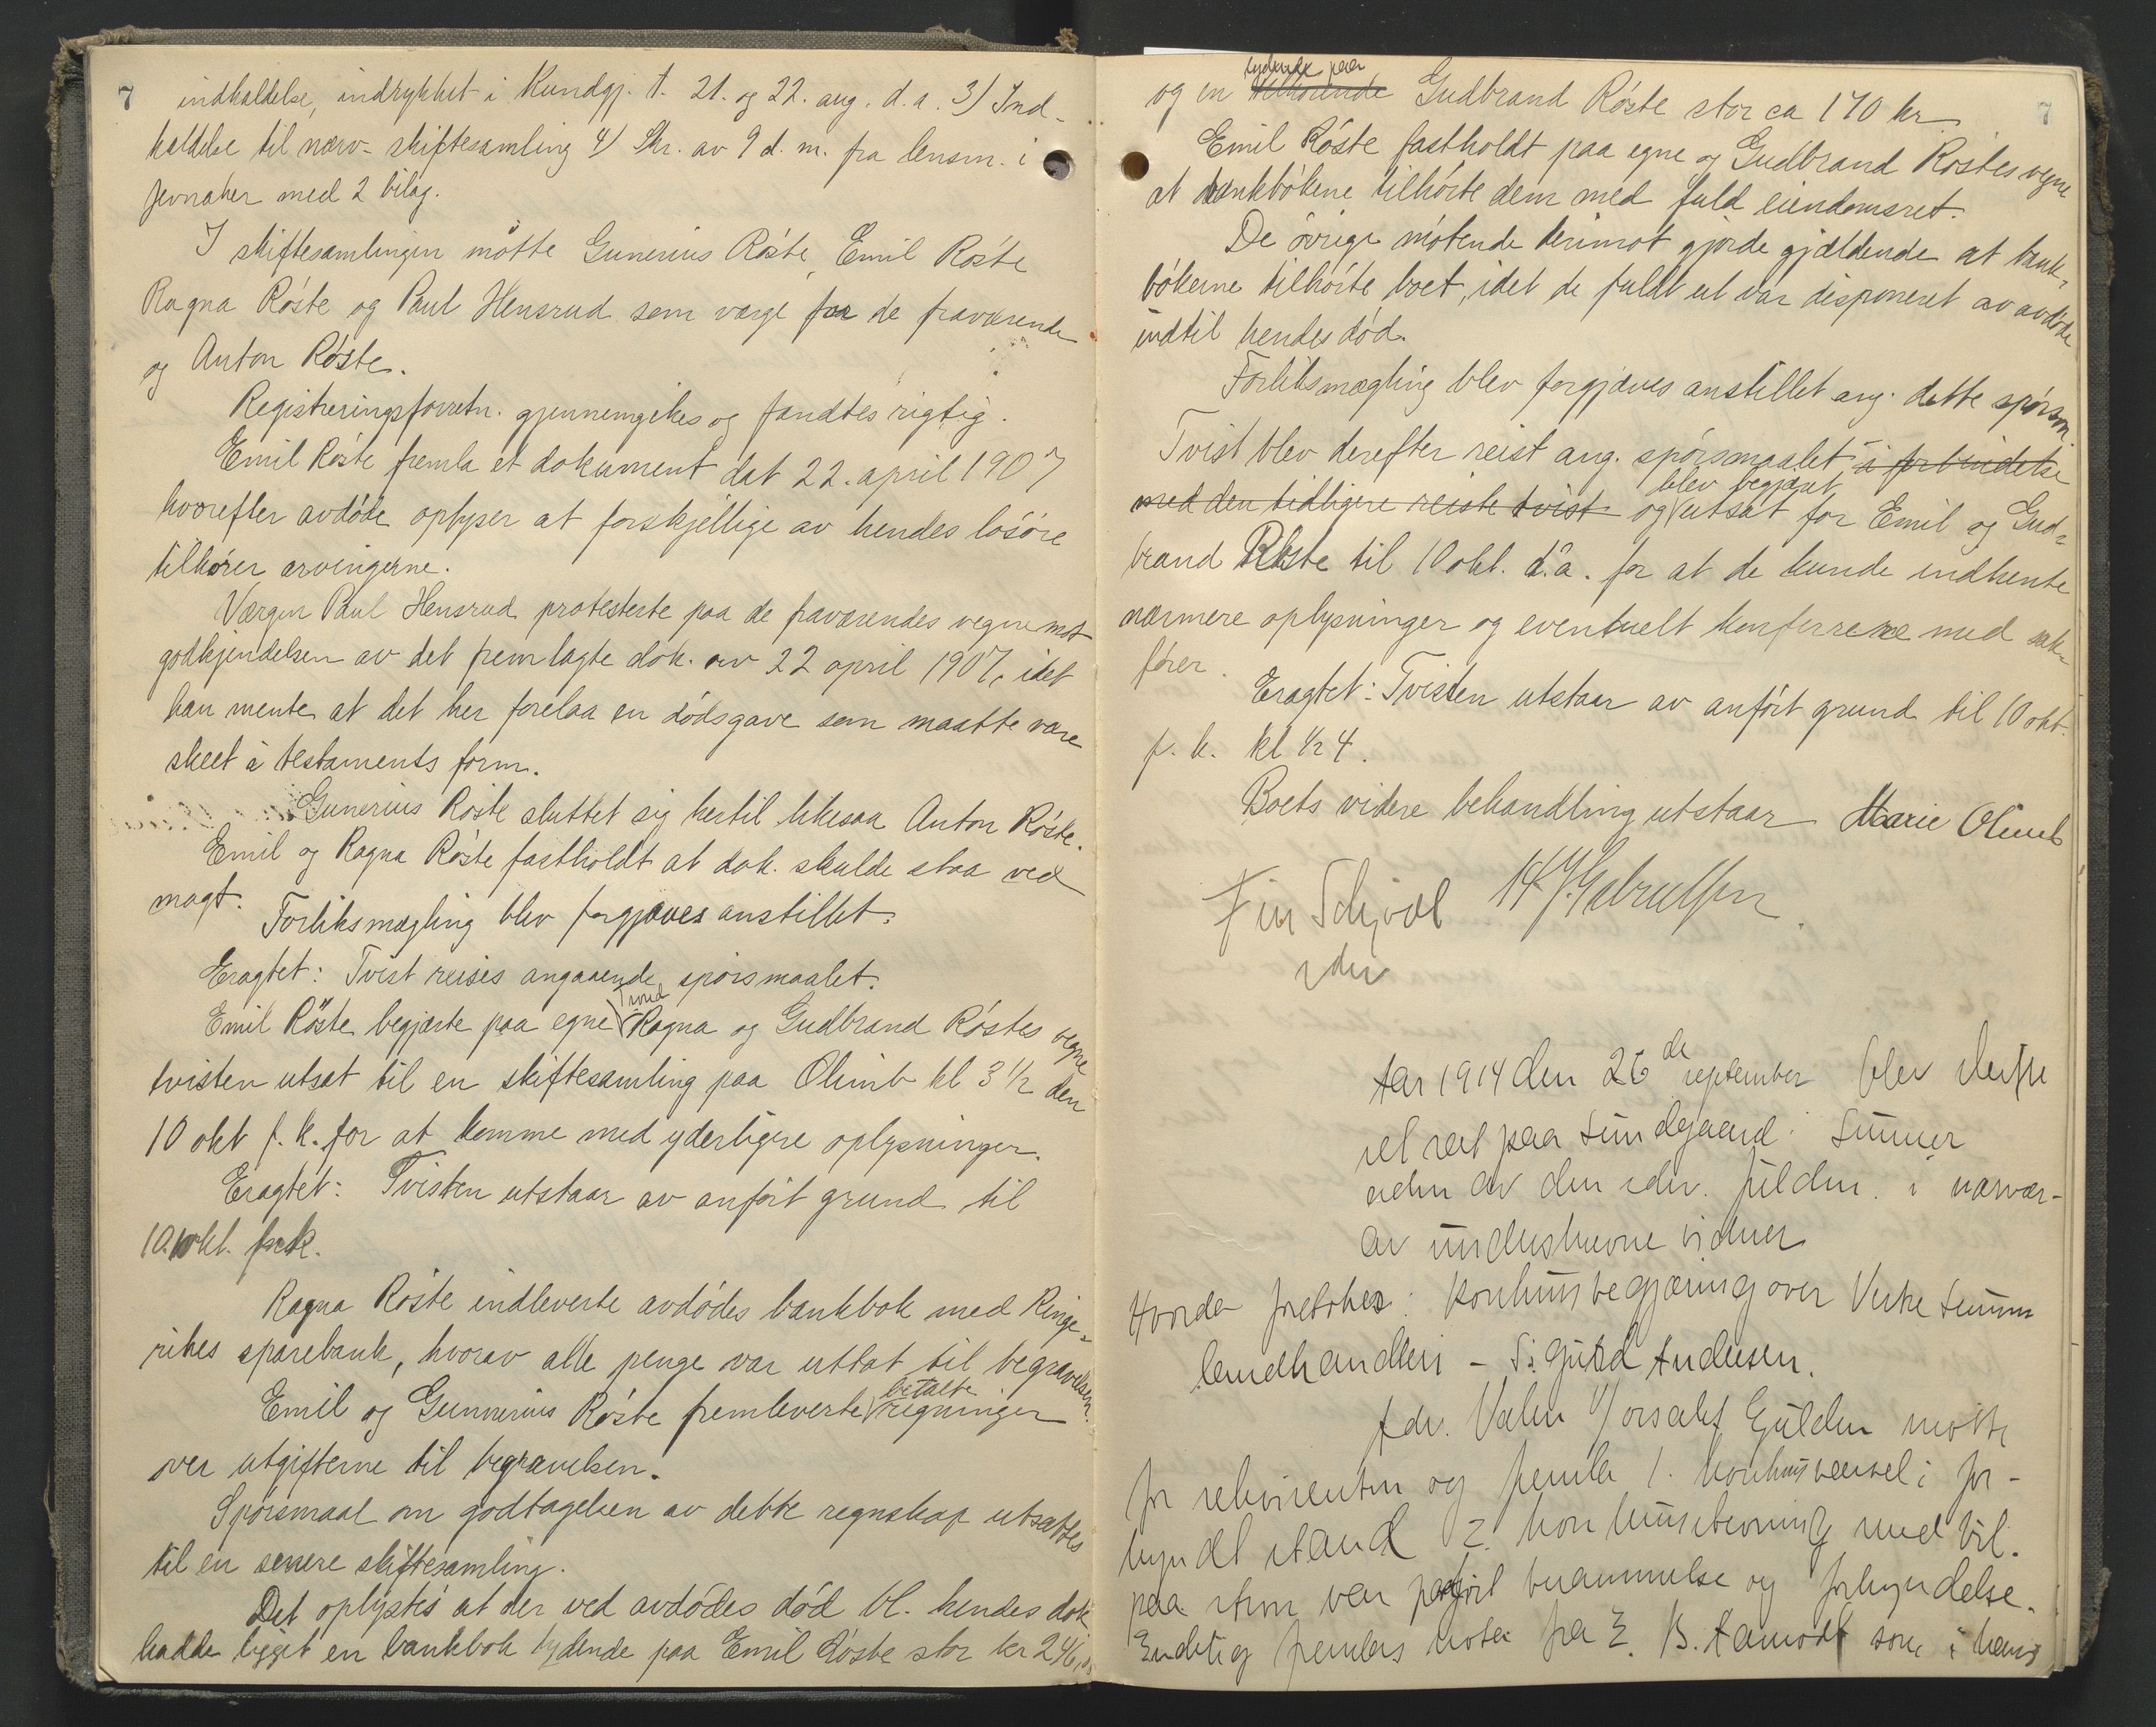 7
indkaldelse, indrykket i Kundgj. t. 21. og 22. aug. d. a. 3) Ind-
kaldelse til nærv. skiftesamling 4) Skr. av 9 d. m. fra lensm. i
Jevnaker med 2 bilag.
I skiftesamlingen møtte Gunerius Røste, Emil Røste
Ragna Røste og Paul Hensrud som værge for de fraværende
og Anton Røste.
Registreringsforretn. gjennemgikes og fandtes rigtig.
Emil Røste fremla et dokument dat 22. april 1907
hvorefter avdøde oplyser at forskjellige av hendes løsøre
tilhører arvingerne.
Værgen Paul Hensrud protesterte paa de fraværendes vegne mot
godkjendelsen av det fremlagte dok. av 22 april 1907, idet
han mente at det her forelaa en dødsgave som maatte være
skeet i testaments form.
Gunerius Røste sluttet sig hertil likesaa Anton Røste.
Emil og Ragna Røste fastholdt at dok. skulde staa ved
magt.
Forliksmægling blev forgjæves anstillet.
Eragtet: Tvist reises angaaende spørsmaalet.
Emil Røste begjærte paa egne Ragna og Gudbrand Røstes vegne
tvisten utsat til en skiftesamling paa Olimb kl 3 1/2 den
10 okt f. k. for at komme med yderligere oplysninger.
Eragtet: Tvisten utstaar av anført grund til
10. okt. f.k.
Ragna Røste indleverte avdødes bankbok med Ringe-
rikes sparebank, hvorav alle penge var uttat til begravelsen.
betalte
Emil og Gunnerius Røste fremleverte regninger
over utgifterne til begravelsen.
Spørsmaal om godtagelsen av dette regnskap utsattes
til en senere skiftesamling.
Det oplystes at der ved avdødes død bl. hendes dok
hadde ligget en bankbok lydende paa Emil Røste stor kr 246,
7
lydende paa
og en tilhørende Gudbrand Røste stor ca 170 kr
Emil Røste fastholdt paa egne og Gudbrand Røstes vegne
at bankbøkene tilhørte dem med fuld eiendomsret.
De øvrige møtende derimot gjorde gjældende at bank-
bøkerne tilhørte boet, idet de fuldt ut var disponeret av avdøde
indtil hendes død.
Forliksmægling blev forgjæves anstillet ang. dette spørsm.
Tvist blev derefter reist ang. spørsmaalet i forbindelse
blev begjæret
med den tidligere reiste tvist og utsat for Emil og Gud-
brand Røste til 10 okt. d. a. for at de kunde indhente
nærmere oplysninger og eventuelt konferrere med sak-
fører.
Eragtet: Tvisten utstaar av anført grund til 10 okt.
f. k. kl 1/2 4.
Boets videre behandling utstaar Marie Olimb
Fin Schjøll
Aar 1914 den 26de september blev skifte
ret sat paa Sundgaard i Brandbu
av den edv. fuldm. i nærvær-
av underskrevne vidner
Hvorda foretokes: Konkursbegjæring over
landhandleri - Sigurd Andersen.
Adv. Valen v/ orsakf. Gulden møtte
for rekvirenten og fremla 1. konkurs i for-
kyndt stand 2. med bil.
paa var paaført berammelse og forkyndelse.
Endelig fremlas fra B. som i hans